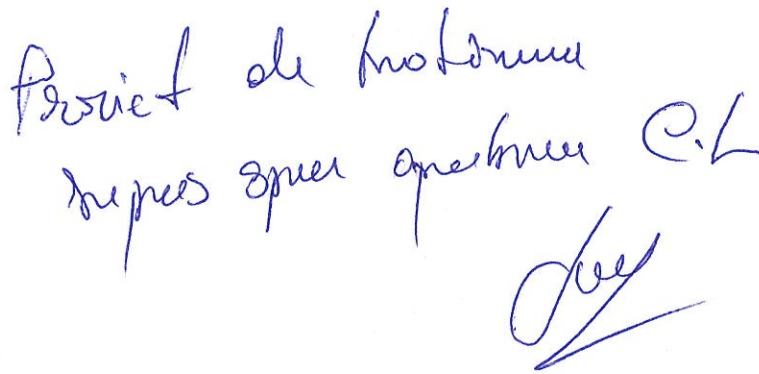 Proiect de hotărâre
supus spre aprobare C.L